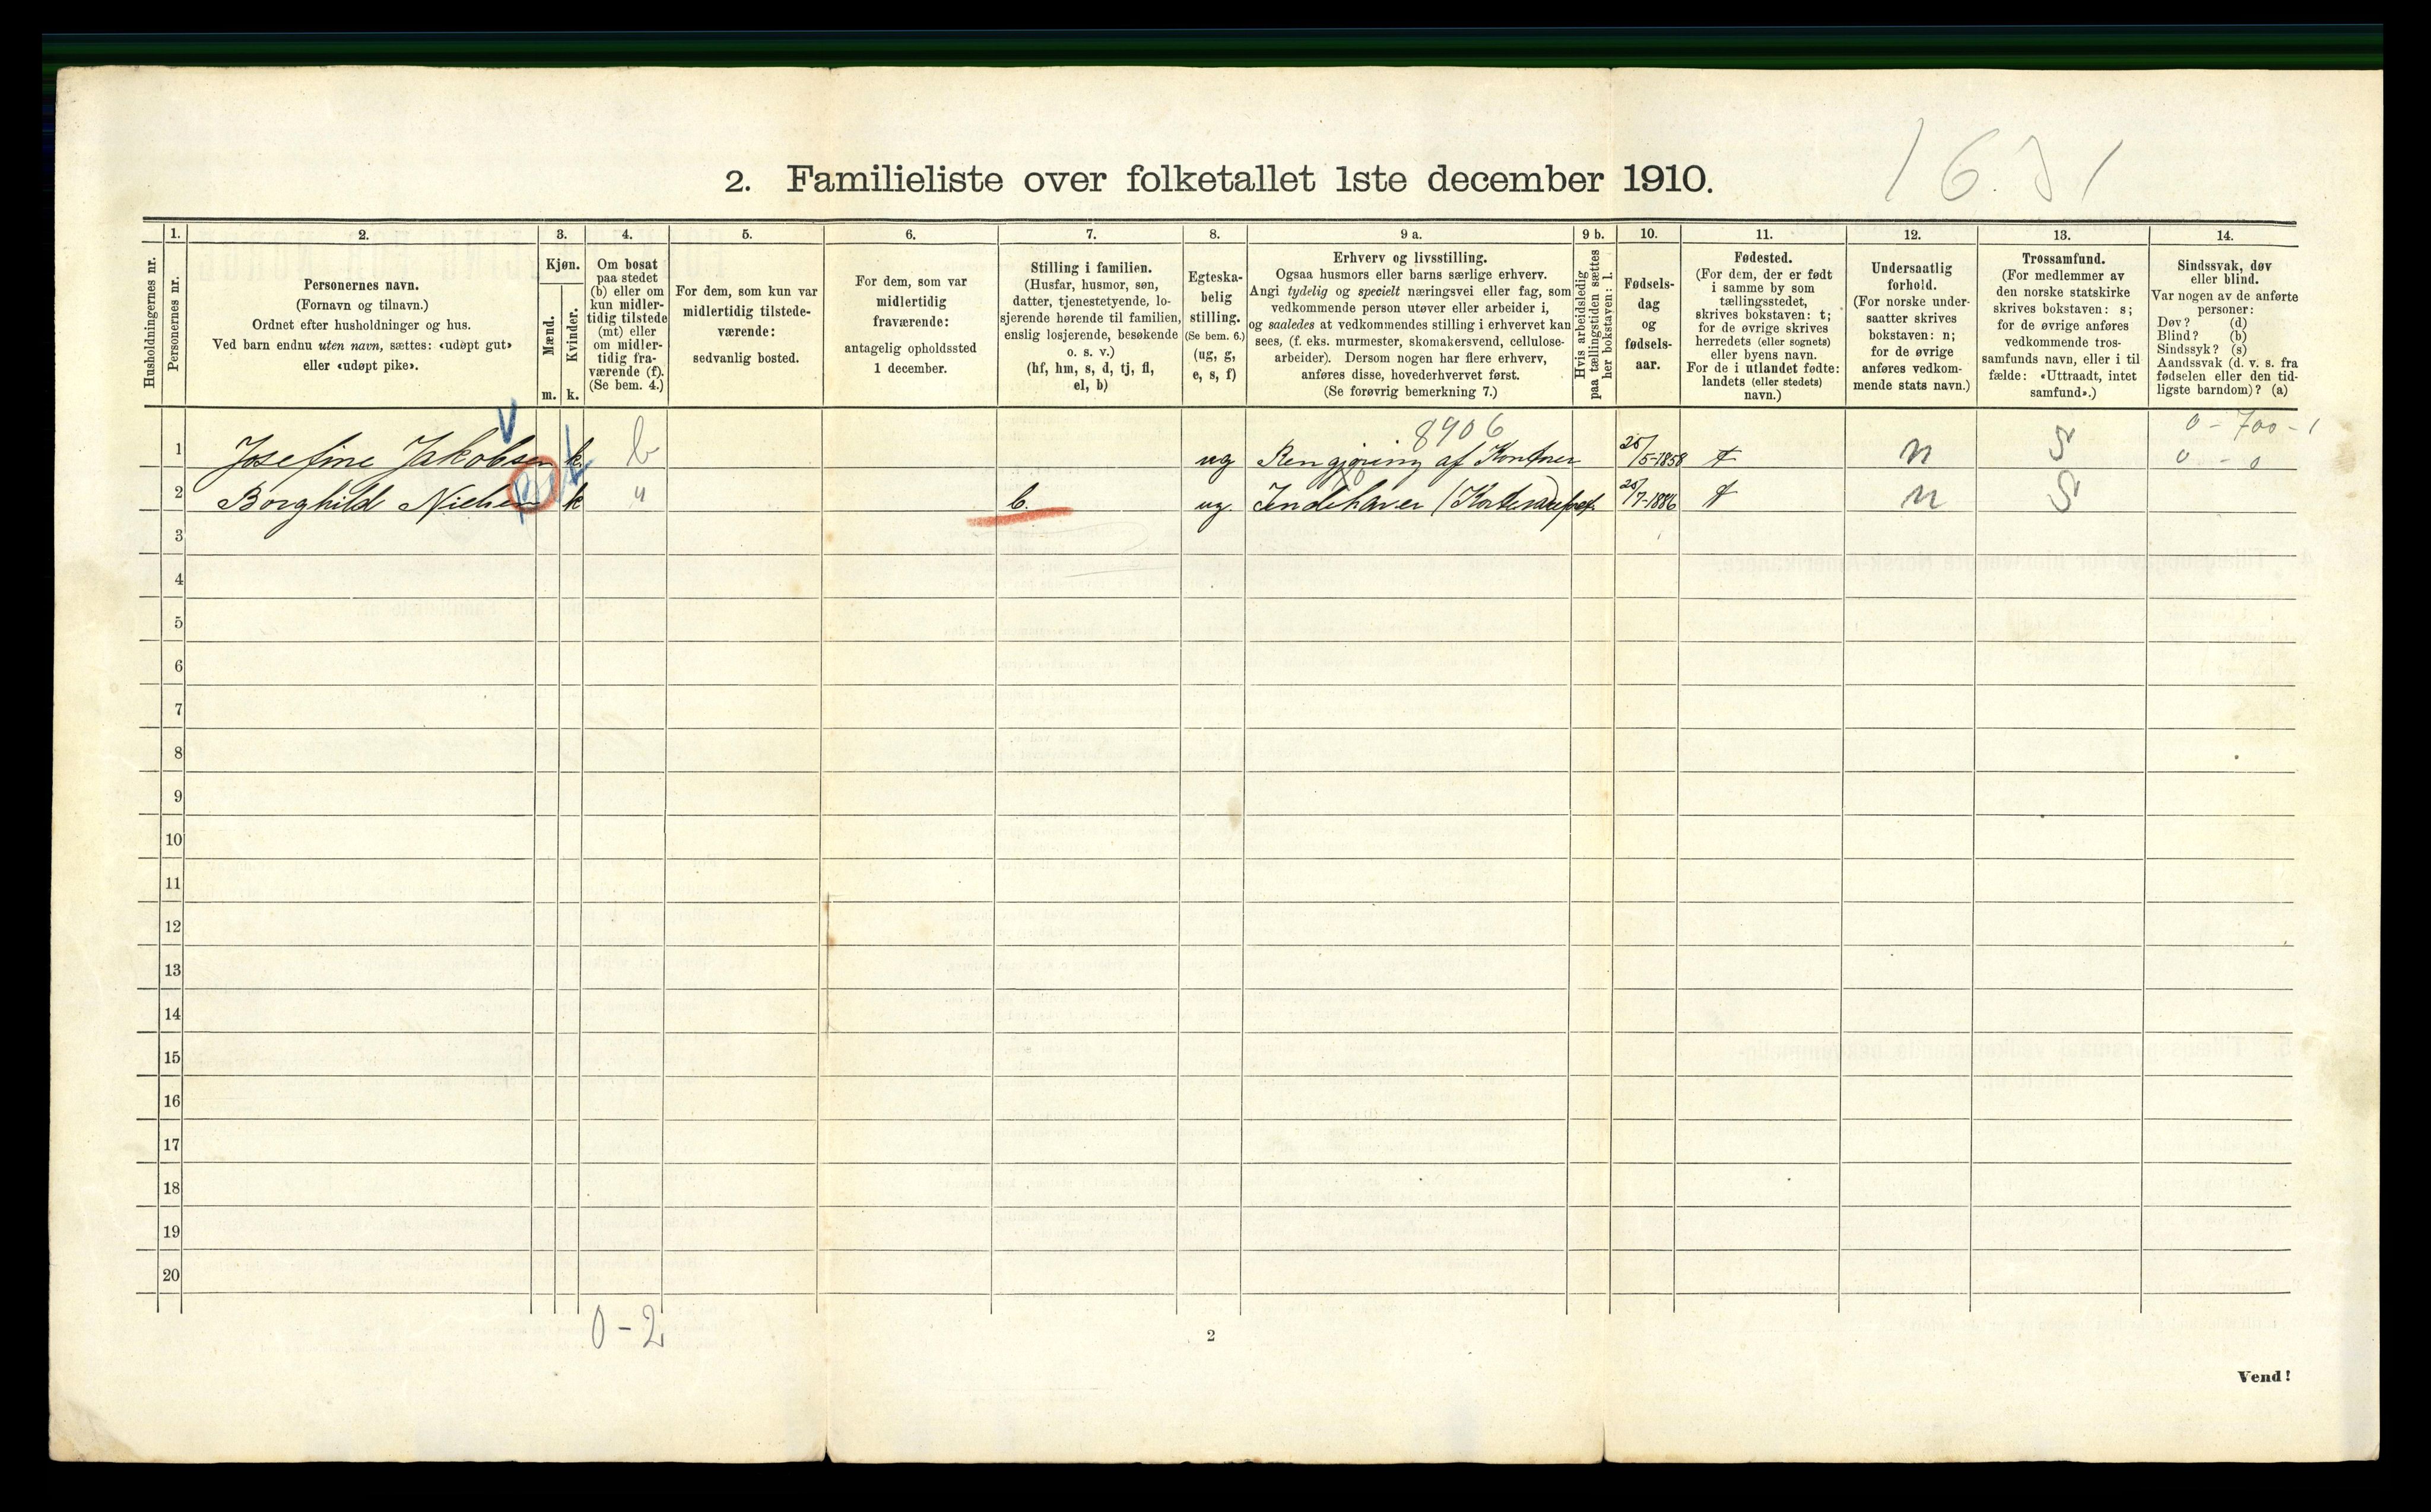 16.31
2. Familieliste over folketallet 1ste december 1910.
Husholdningernes nr.
1. Personernes nr.
2. Personernes navn.
(Fornavn og tilnavn.)
Ordnet efter husholdninger og hus.
Ved barn endnu uten navn, sættes: «udøpt gut»
eller «udøpt pike».
3. Kjøn.
Mænd. m.
Kvinder. k.
4. Om bosat
paa stedet
(b) eller om
kun midler-
tidig tilstede
(mt) eller
om midler-
tidig fra-
værende (f).
(Se bem. 4.)
5. For dem, som kun var
midlertidig tilstede-
værende:
sedvanlig bosted.
6. For dem, som var
midlertidig
fraværende:
antagelig opholdssted
1 december.
7. Stilling i familien.
(Husfar, husmor, søn,
datter, tjenestetyende, lo-
sjerende hørende til familien,
enslig losjerende, besøkende
o. s. v.)
(hf, hm, s, d, tj, fl,
el, b)
8. Egteska-
belig
stilling.
(Se bem. 6.)
(ug, g,
e, s, f)
9 a. Erhverv og livsstilling.
Ogsaa husmors eller barns særlige erhverv.
Angi tydelig og specielt næringsvei eller fag, som
vedkommende person utøver eller arbeider i,
og saaledes at vedkommendes stilling i erhvervet kan
sees, (f. eks. murmester, skomakersvend, cellulose-
arbeider). Dersom nogen har flere erhverv,
anføres disse, hovederhvervet først.
(Se forøvrig bemerkning 7.)
9 b. Hvis arbeidsledig
paa tællingstiden sættes
her bokstaven: l.
10. Fødsels-
dag
og
fødsels-
aar.
11. Fødested.
(For dem, der er født
i samme by som
tællingsstedet,
skrives bokstaven: t;
for de øvrige skrives
herredets (eller sognets)
eller byens navn.
For de i utlandet fødte:
landets (eller stedets)
navn.)
12. Undersaatlig
forhold.
(For norske under-
saatter skrives
bokstaven: n;
for de øvrige
anføres vedkom-
mende stats navn.)
13. Trossamfund.
(For medlemmer av
den norske statskirke
skrives bokstaven: s;
for de øvrige anføres
vedkommende tros-
samfunds navn, eller i til
fælde: «Uttraadt, intet
samfund».)
14. Sindssvak, døv
eller blind.
Var nogen av de anførte
personer:
Døv? (d)
Blind? (b)
Sindssyk? (s)
Aandssvak (d. v. s. fra
fødselen eller den tid-
ligste barndom)? (a)
8906
0 - 700 - 1
1 Josefine Jakobsen k b ug Rengjøring af Kontner 25/5-1858 t n S 0 - 0
2 Borghild Nielsen k " b. ug. Indehaver 25/7-1886 t n S
3
4
5
6
7
8
9
10
11
12
13
14
15
16
17
18
19
20
0-2
2
Vend!